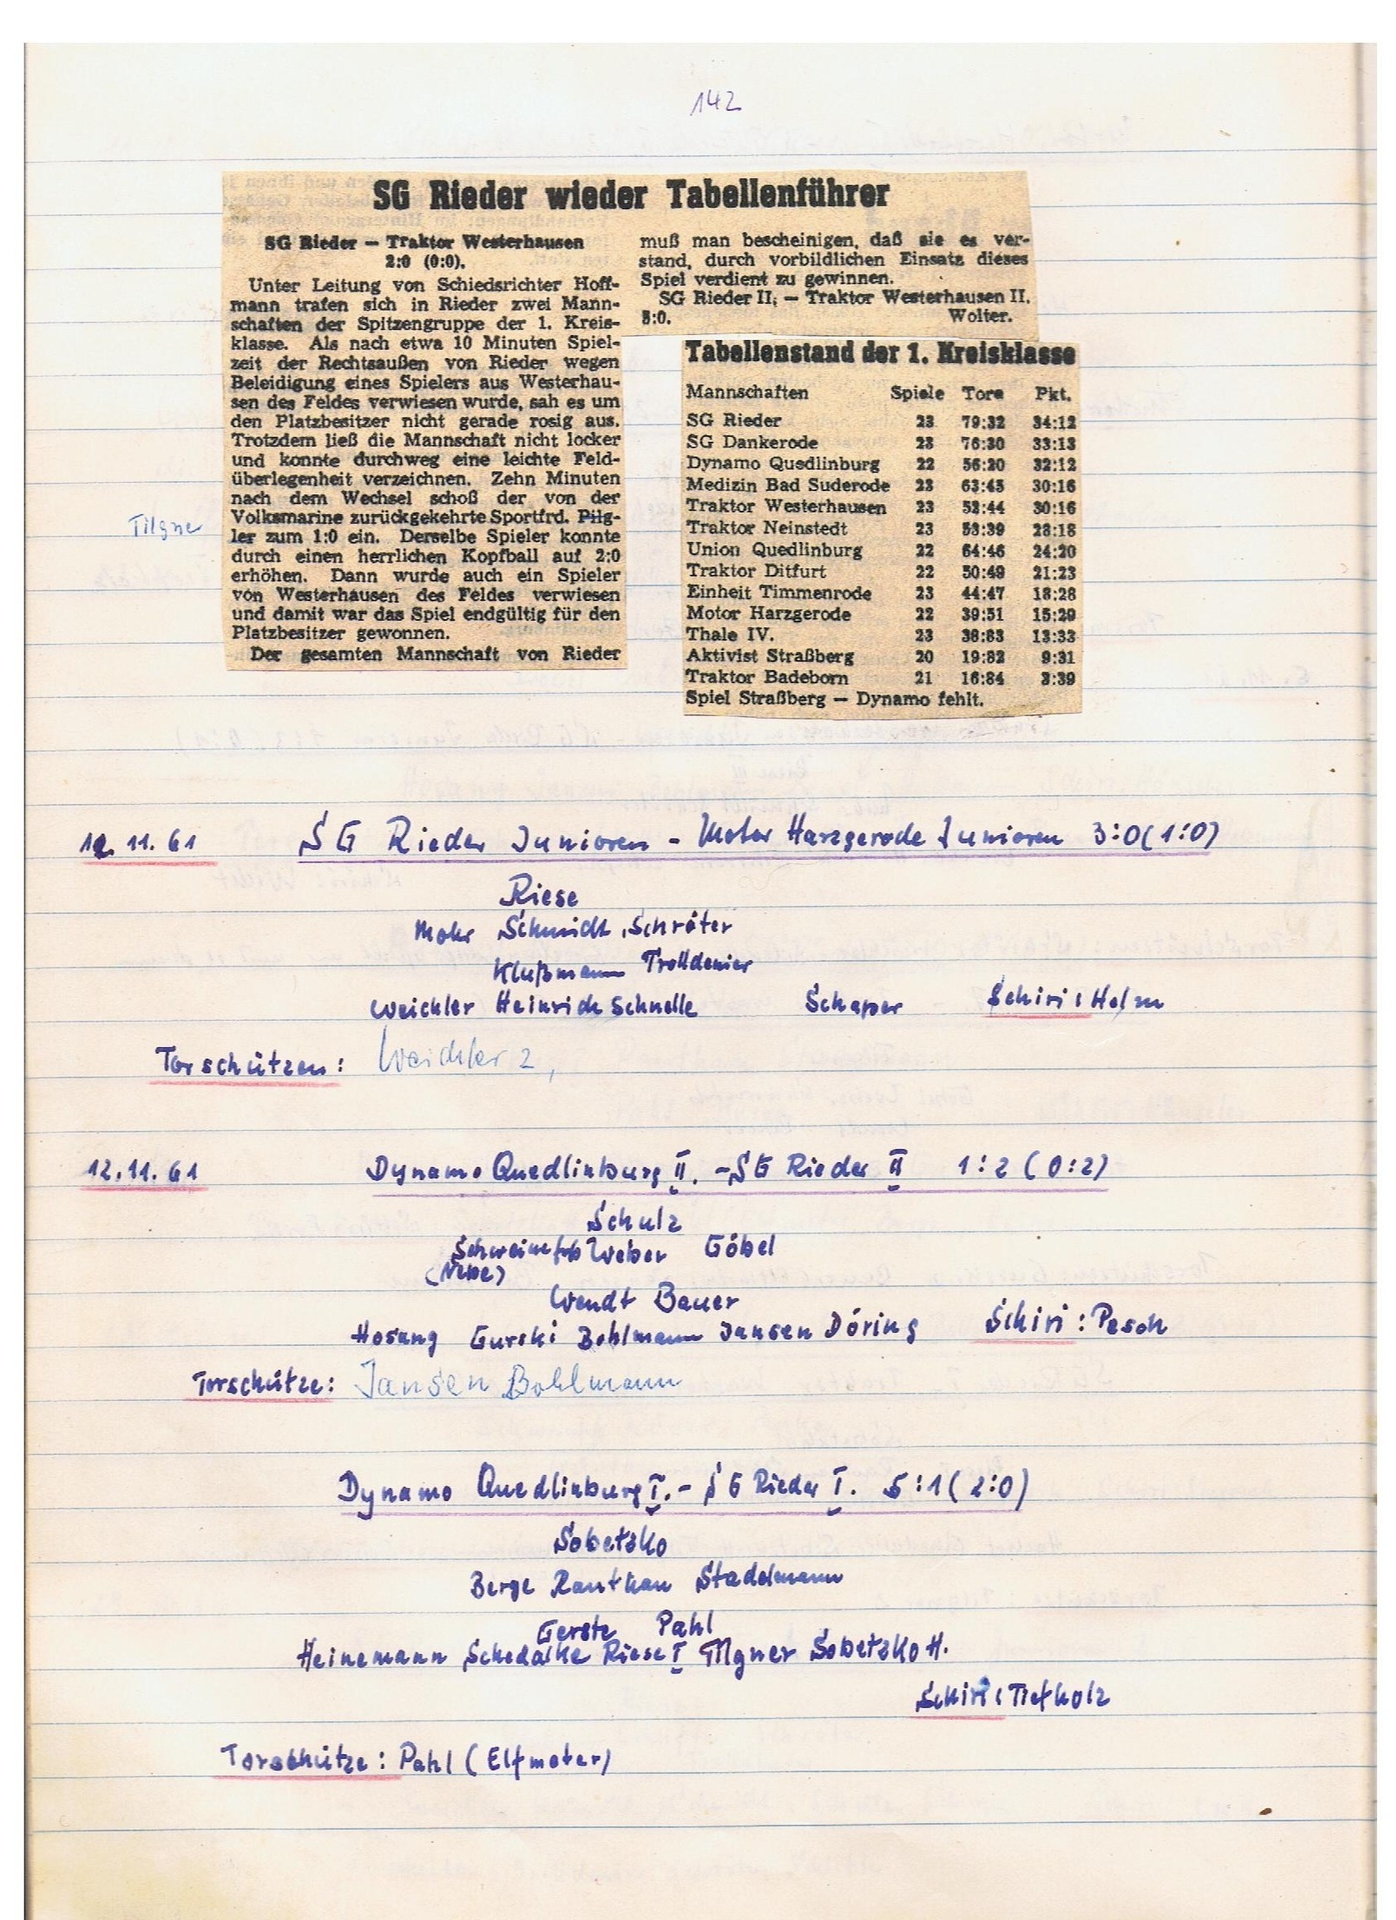 142
SG Rieder wieder Tabellenführer
SG Rieder — Traktor Westerhausen
2:0 (0:0).
Unter Leitung von Schiedsrichter Hoff-
mann trafen sich in Rieder zwei Mann-
schaften der Spitzengruppe der 1. Kreis-
klasse. Als nach etwa 10 Minuten Spiel-
zeit der Rechtsaußen von Rieder wegen
Beleidigung eines Spielers aus Westerhau-
sen des Feldes verwiesen wurde, sah es um
den Platzbesitzer nicht gerade rosig aus.
Trotzdem ließ die Mannschaft nicht locker
und konnte durchweg eine leichte Feld-
überlegenheit verzeichnen. Zehn Minuten
nach dem Wechsel schoß der von der
Volksmarine zurückgekehrte Sportfrd. Pilg-
ler zum 1:0 ein. Derselbe Spieler konnte
durch einen herrlichen Kopfball auf 2:0
erhöhen. Dann wurde auch ein Spieler
von Westerhausen des Feldes verwiesen
und damit war das Spiel endgültig für den
Platzbesitzer gewonnen.
Der gesamten Mannschaft von Rieder
Tilgner
muß man bescheinigen, daß sie es ver-
stand, durch vorbildlichen Einsatz dieses
Spiel verdient zu gewinnen.
SG Rieder II. — Traktor Westerhausen II.
Wolter.
Tabellenstand der 1. Kreisklasse
Mannschaften Spiele Tore Pkt.
SG Rieder 23 79:32 34:12
SG Dankerode 23 76:30 33:13
Dynamo Quedlinburg 22 56:20 32:12
Medizin Bad Suderode 23 63:45 30:16
Traktor Westerhausen 23 52:44 30:16
Traktor Neinstedt 23 53:39 28:18
Union Quedlinburg 22 64:46 24:20
Traktor Ditfurt 22 50:49 21:23
Einheit Timmenrode 23 44:47 18:28
Motor Harzgerode 22 39:51 15:29
Thale IV. 23 38:83 13:33
Aktivist Straßberg 20 19:82 9:31
Traktor Badeborn 21 16:84 3:39
Spiel Straßberg — Dynamo fehlt.
12. 11. 61 SG Rieder Junioren - Motor Harzgerode Junioren 3:0 (1:0)
Riese
Mohr Schmidt Schröter
Klußmann Trolldenier
Weichler Heinrich Schnelle Schaper Schiri: Helm
Torschützen: Weichler 2,
12. 11. 61 Dynamo Quedlinburg II. - SG Rieder II 1:2 (0:2)
Schulz
Weber Göbel
Wendt Bauer
Hosung Gurski Bohlmann Jansen Döring Schiri: Pesch
Torschütze: Jansen Bohlmann
Dynamo Quedlinburg I. - SG Rieder I. 5:1 (2:0)
Sobetzko
Berge Ranthan Stadelmann
Gerste Pahl
Heinemann Schedalke Riese I Tilgner Sobetzko H.
Schiri: Tiefholz
Torschütze: Pahl (Elfmeter)